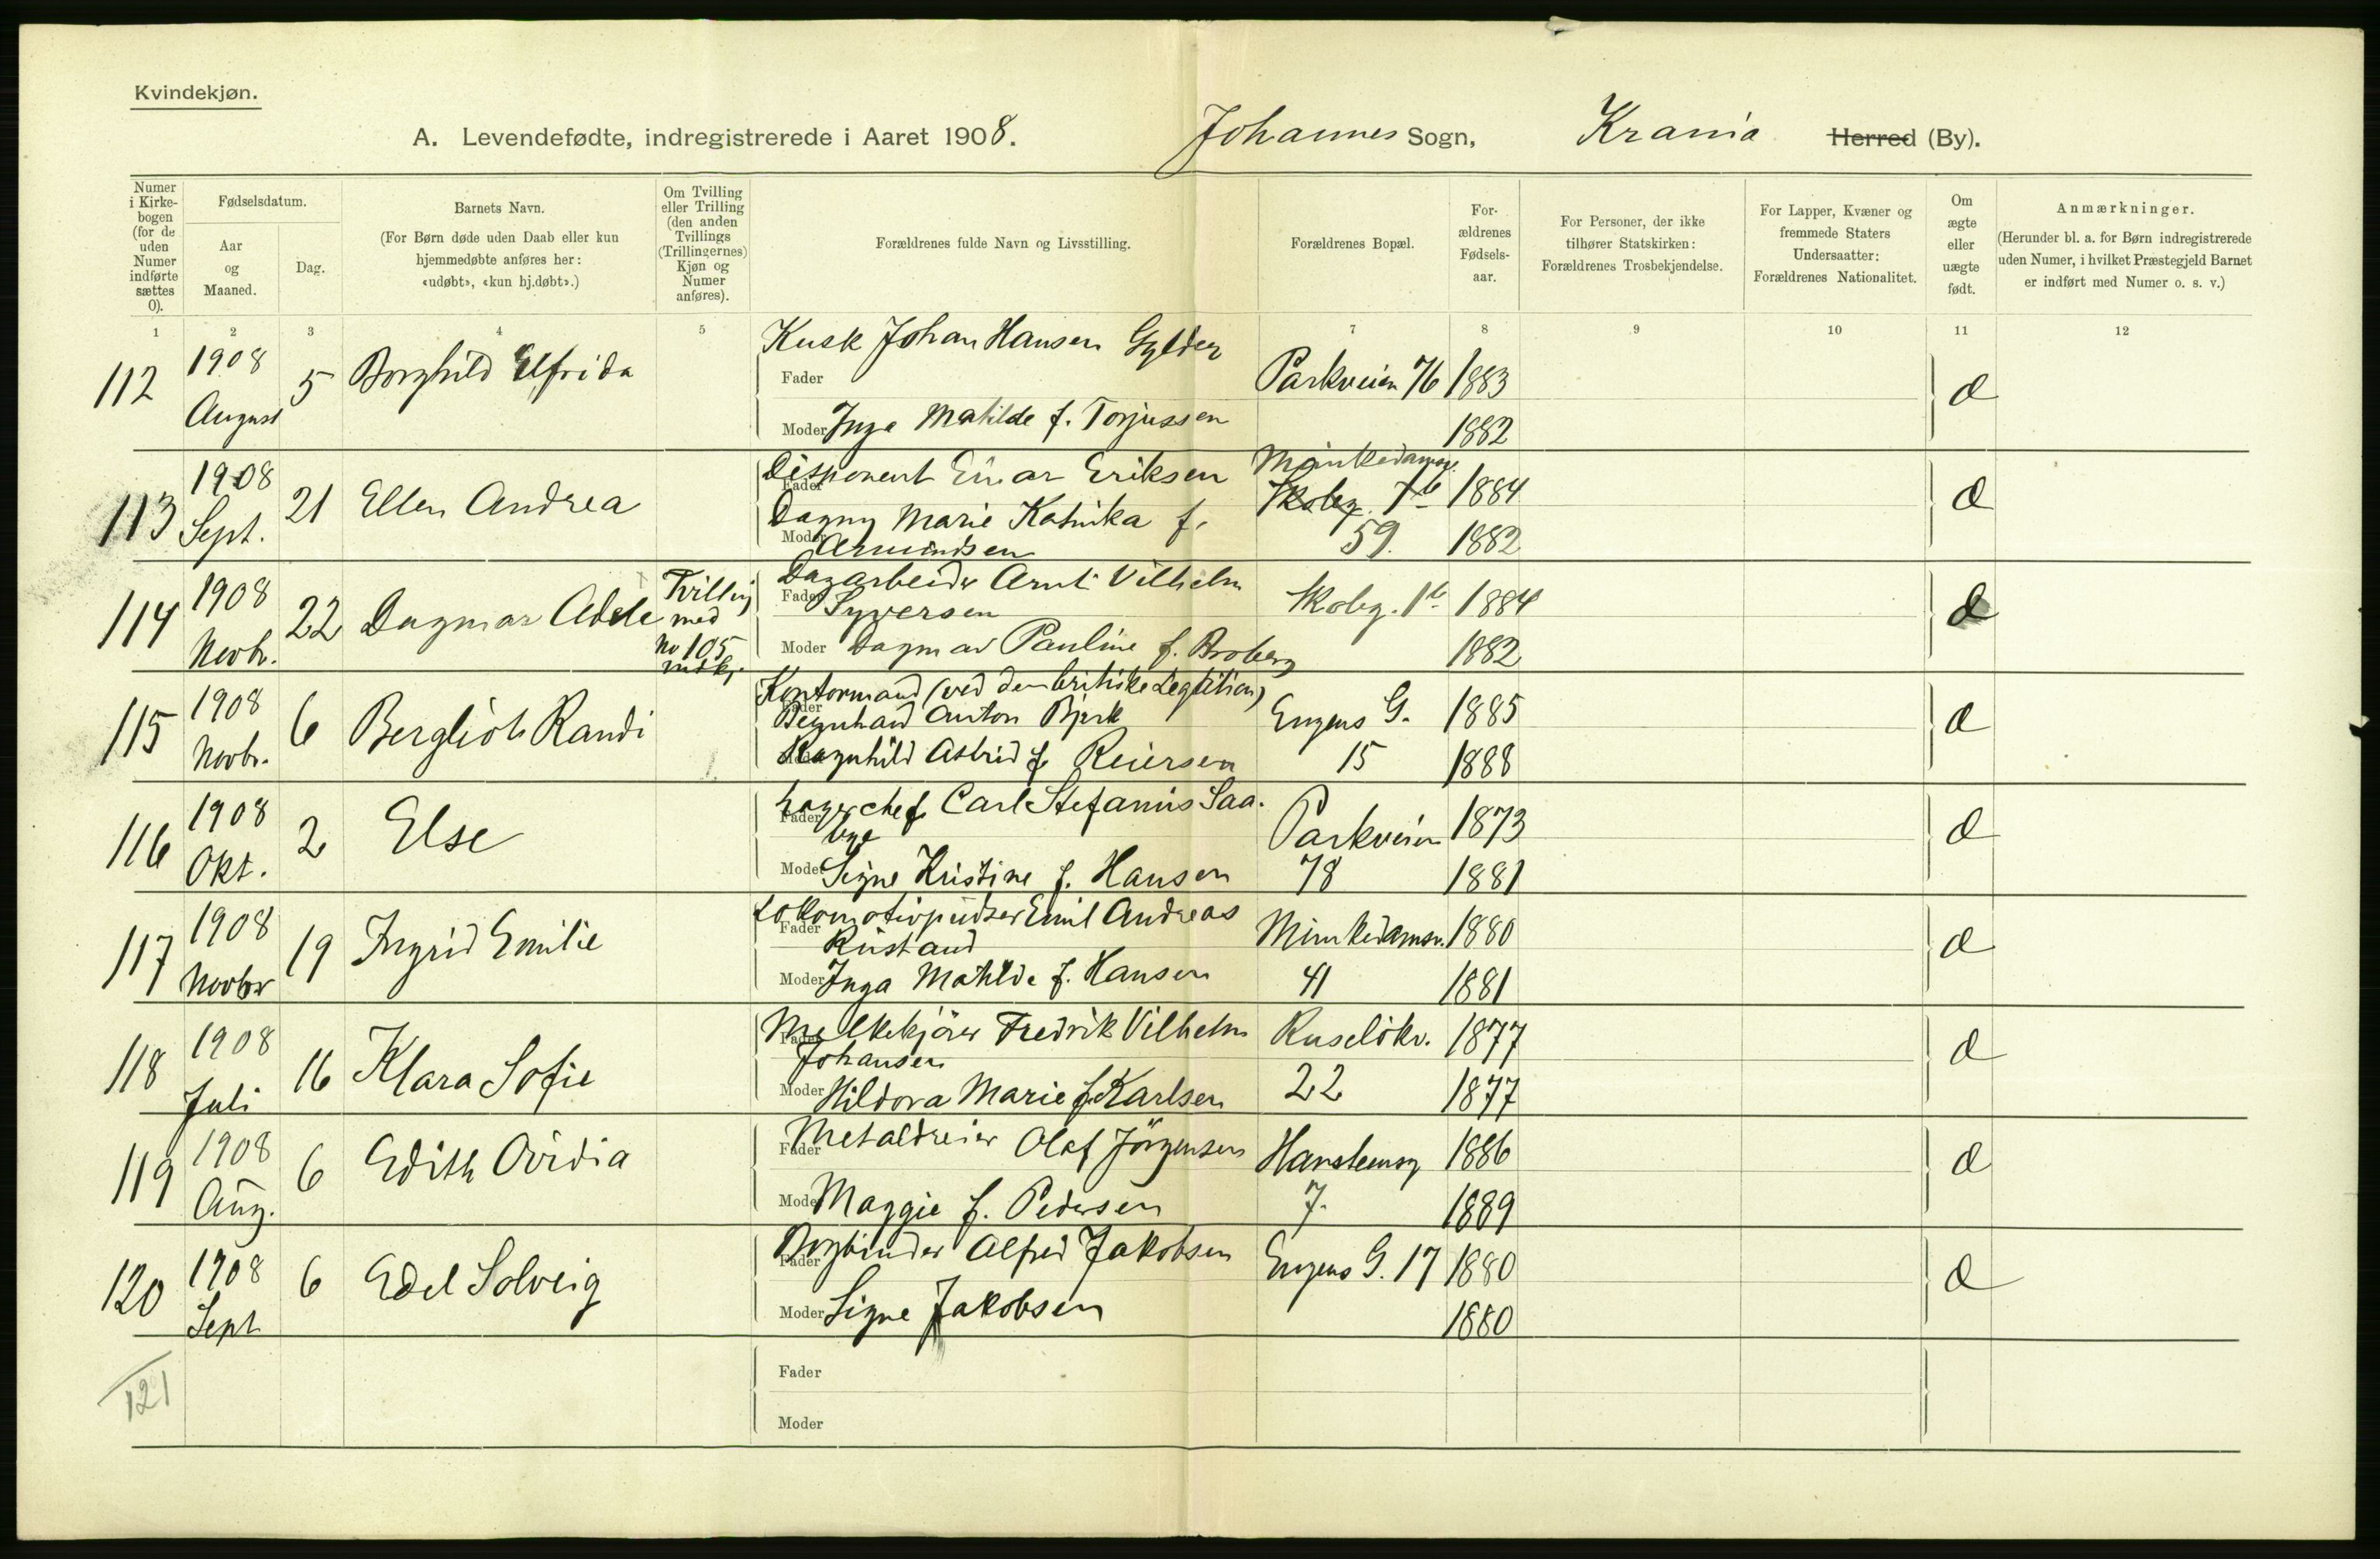 Kvindekjøn.
A. Levendefødte, indregistrerede i Aaret 1908. Johannes Sogn, Krania Herred (By).
Numer i Kirkebogen (for de uden Numer indførte sættes 0).
Fødselsdatum.
Aar og Maaned.
Dag.
Barnets Navn.
(For Børn døde uden Daab eller kun hjemmedøbte anføres her: «udøbt», «kun hj.døbt».)
Om Tvilling eller Trilling (den anden Tvillings (Trillingernes) Kjøn og Numer anføres).
Forældrenes fulde Navn og Livsstilling.
Forældrenes Bopæl.
Forældrenes Fødselsaar.
For Personer, der ikke tilhører Statskirken: Forældrenes Trosbekjendelse.
For Lapper, Kvæner og fremmede Staters Undersaatter: Forældrenes Nationalitet.
Om ægte eller uægte født.
Anmærkninger.
(Herunder bl. a. for Børn indregistrerede uden Numer, i hvilket Præstegjeld Barnet er indført med Numer o. s. v.)
1 2 3 4 5 7 8 9 10 11 12
112 1908 August 5 Borghild Elfrida
Kusk Johan Hansen Gylder
Fader Parkveien 76 1883
Moder Inga Matilde f. Torjussen 1882
113 1908 Sept. 21 Ellen Andrea
Disponent Einar Eriksen Munkedamsv.
Fader Skoleg. 7b 1884
Dagny Marie Katinka f.
Moder Armundsen 59. 1882
114 1908 Novbr. 22 Dagmar Adele Tvilling med No 105 mdkj.
Dagarbeider Arnt Vilhelm
Fader Syversen Skoleg. 1b 1884
Moder Dagmar Pauline f. Broberg 1882
115 1908 Novbr. 6 Bergliot Randi
Kontormand (ved den britiske Legation)
Fader Bernhard Anton Bjerk Eugens G. 1885
Ragnhild Astrid f. Reiersen 15 1888
116 1908 Okt. 2 Else
Lagerchef Carl Stefanus Saa-
Fader bye Parkveien 1873
Moder Signe Kristine f. Hansen 78 1881
117 1908 Novbr 19 Ingrid Emilie
Lokomotivpudser Emil Andreas
Fader Rustand Munkedamsv. 1880
Moder Inga Mathilde f. Hansen 41 1881
118 1908 Juli 16 Klara Sofie
Melkekjører Fredrik Vilhelm Ruseløkv. 1877
Fader Johansen
Moder Hildora Marie f. Karlsen 22 1877
119 1908 Aug. 6 Edith Ovidia
Fader Metaldreier Olaf Jörgensen Hansteensg 1886
Moder Maggie f. Pedersen 7. 1889
120 1908 Sept 6 Edel Solveig
Fader Bogbinder Alfred Jakobsen Eugens G. 17 1880
Moder Signe Jakobsen 1880
121
Fader
Moder